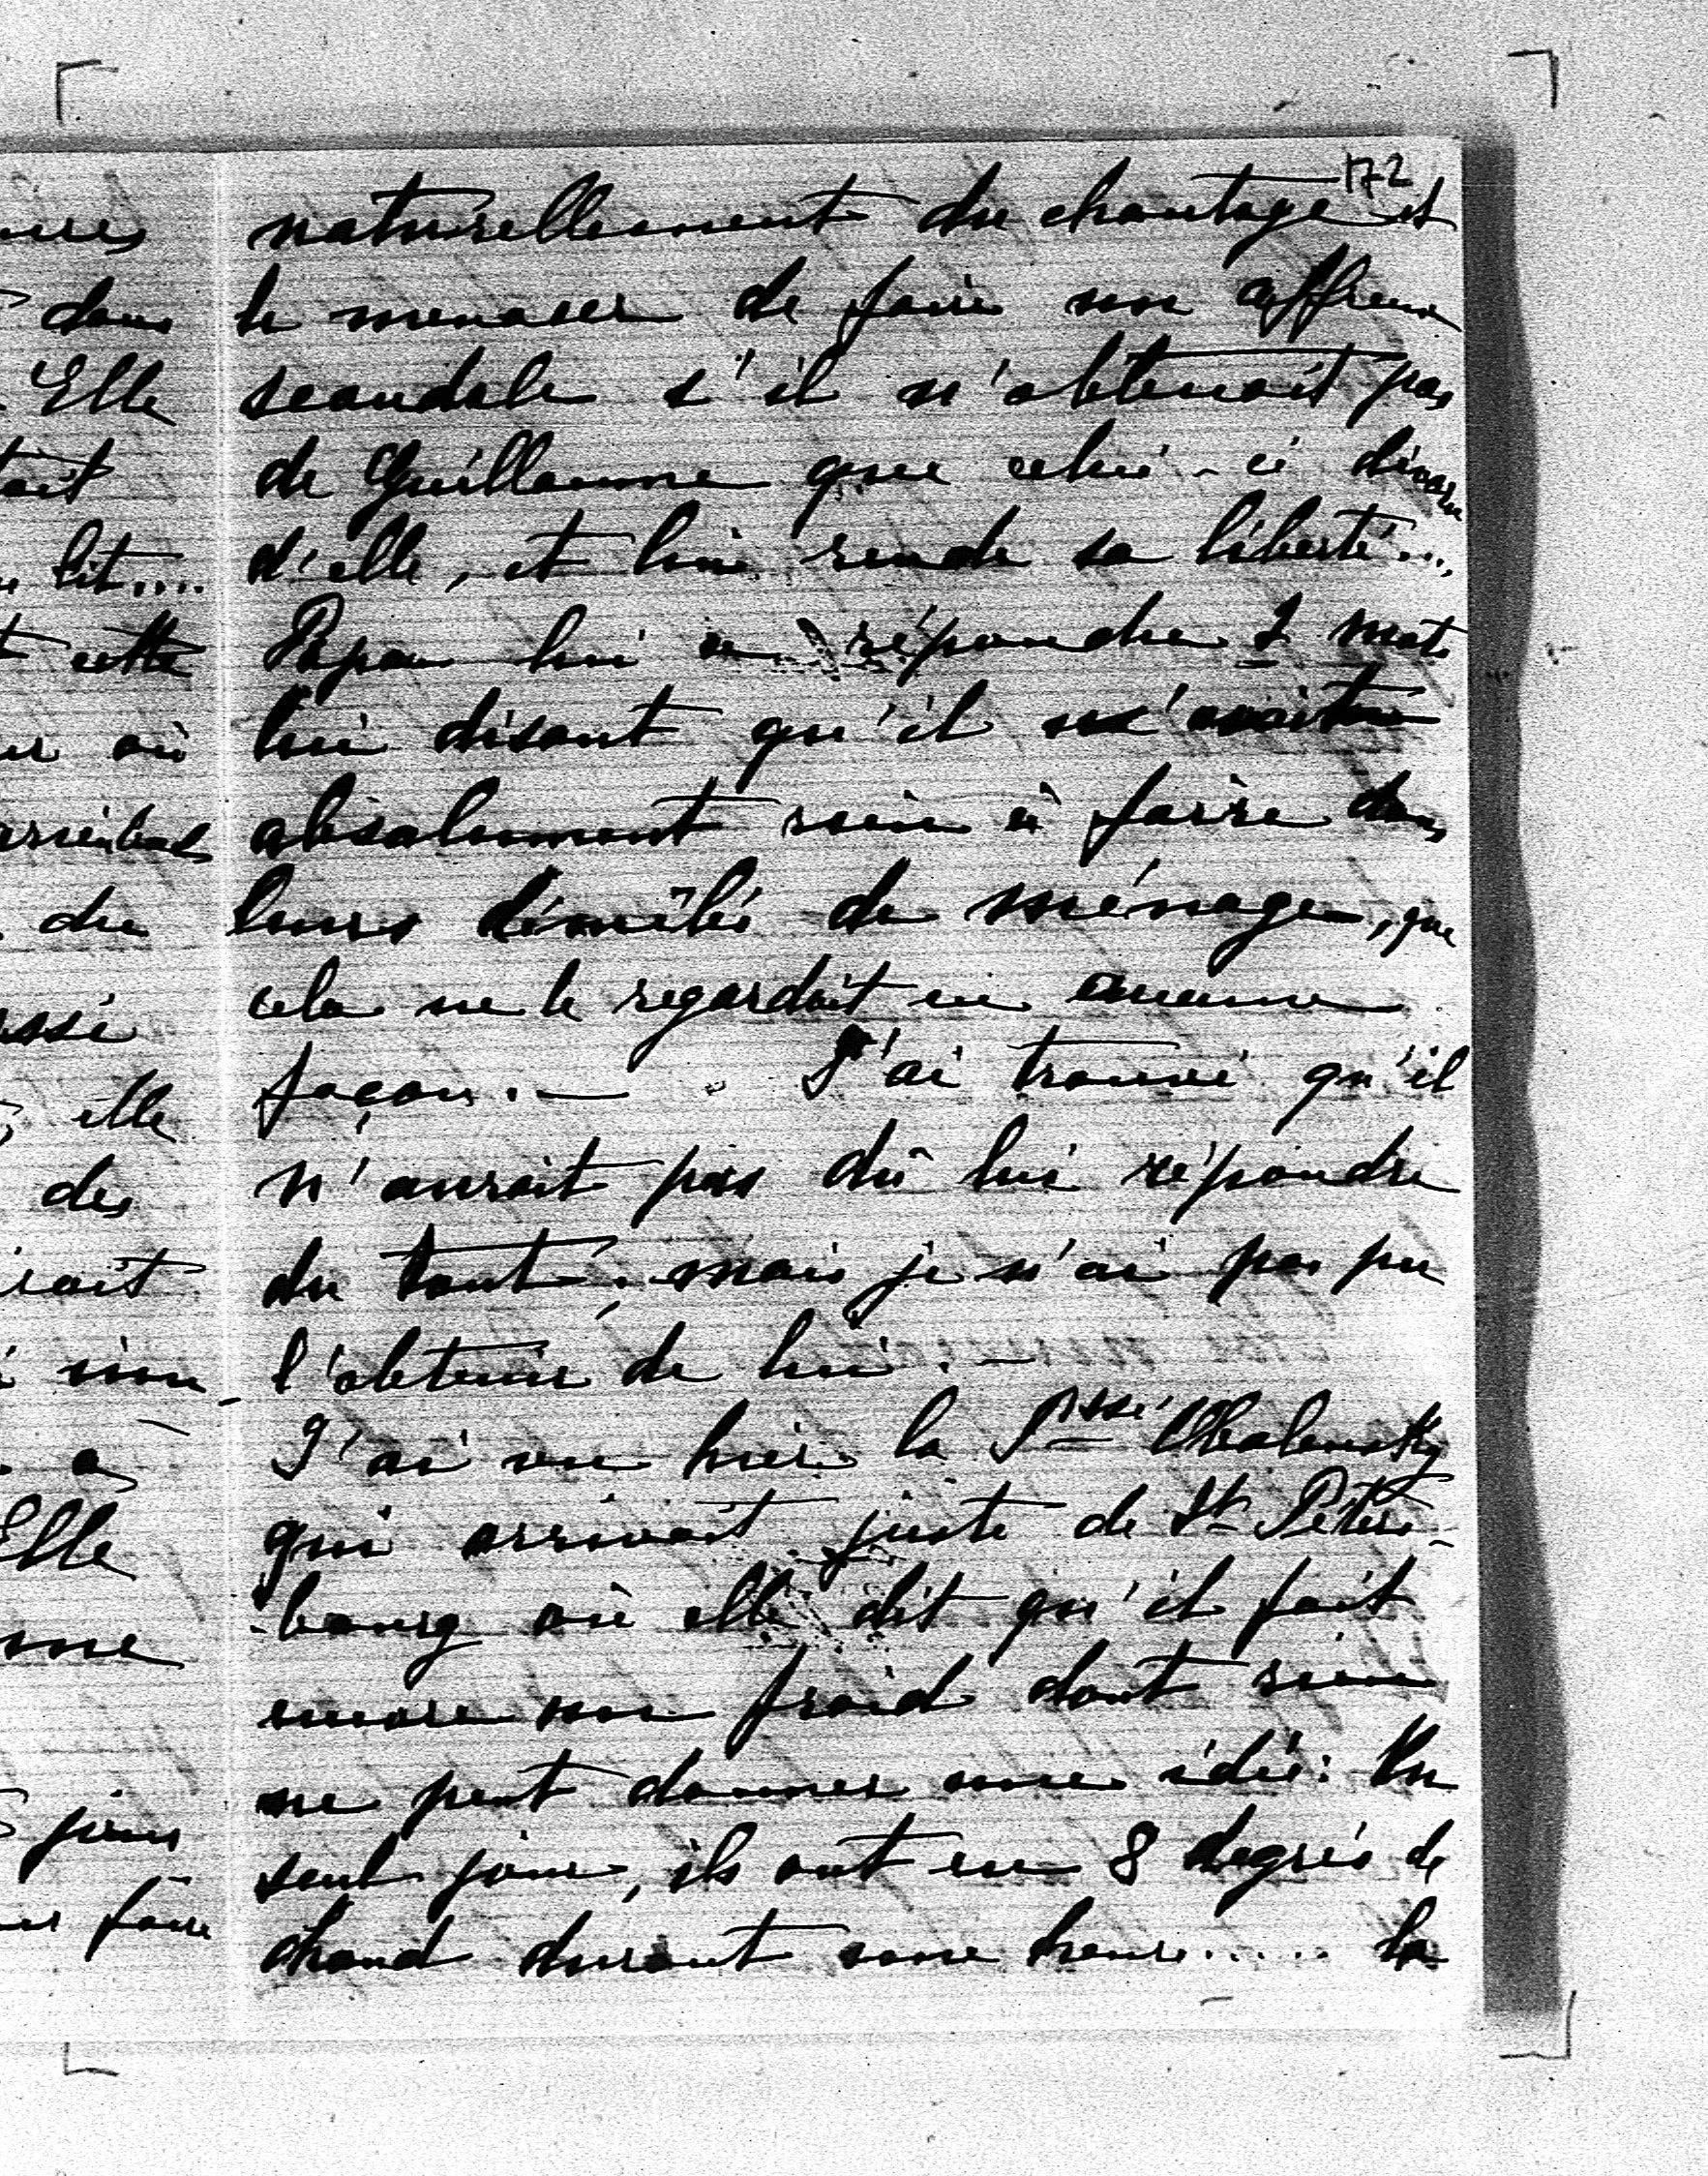 172
naturellement du chantage et
le menacer de faire un affreux
scandale s'il n'obtenait pas
de Guillaume que celui-ci divorce
d'elle, et lui rende sa liberté...
Papa lui a répondu 2 mots
lui disant qu'il n'avait
absolument rien à faire dans
leurs démêlés de ménage, que
cela ne le regardait en aucune
façon. — J'ai trouvé qu'il
n'aurait pas dû lui répondre
du tout, mais je n'ai pas pu
l'obtenir de lui. —
J'ai vu hier la Psse Obolensky
qui arrivait juste de St Péters-
-bourg où elle dit qu'il fait
encore un froid dont rien
ne peut donner une idée: Un
seul jour, ils ont eu 8 degrés de
chaud durant une heure..... la
dans
Elle
lit....
cette
où
du
elle
des
a
Elle
jours
faire